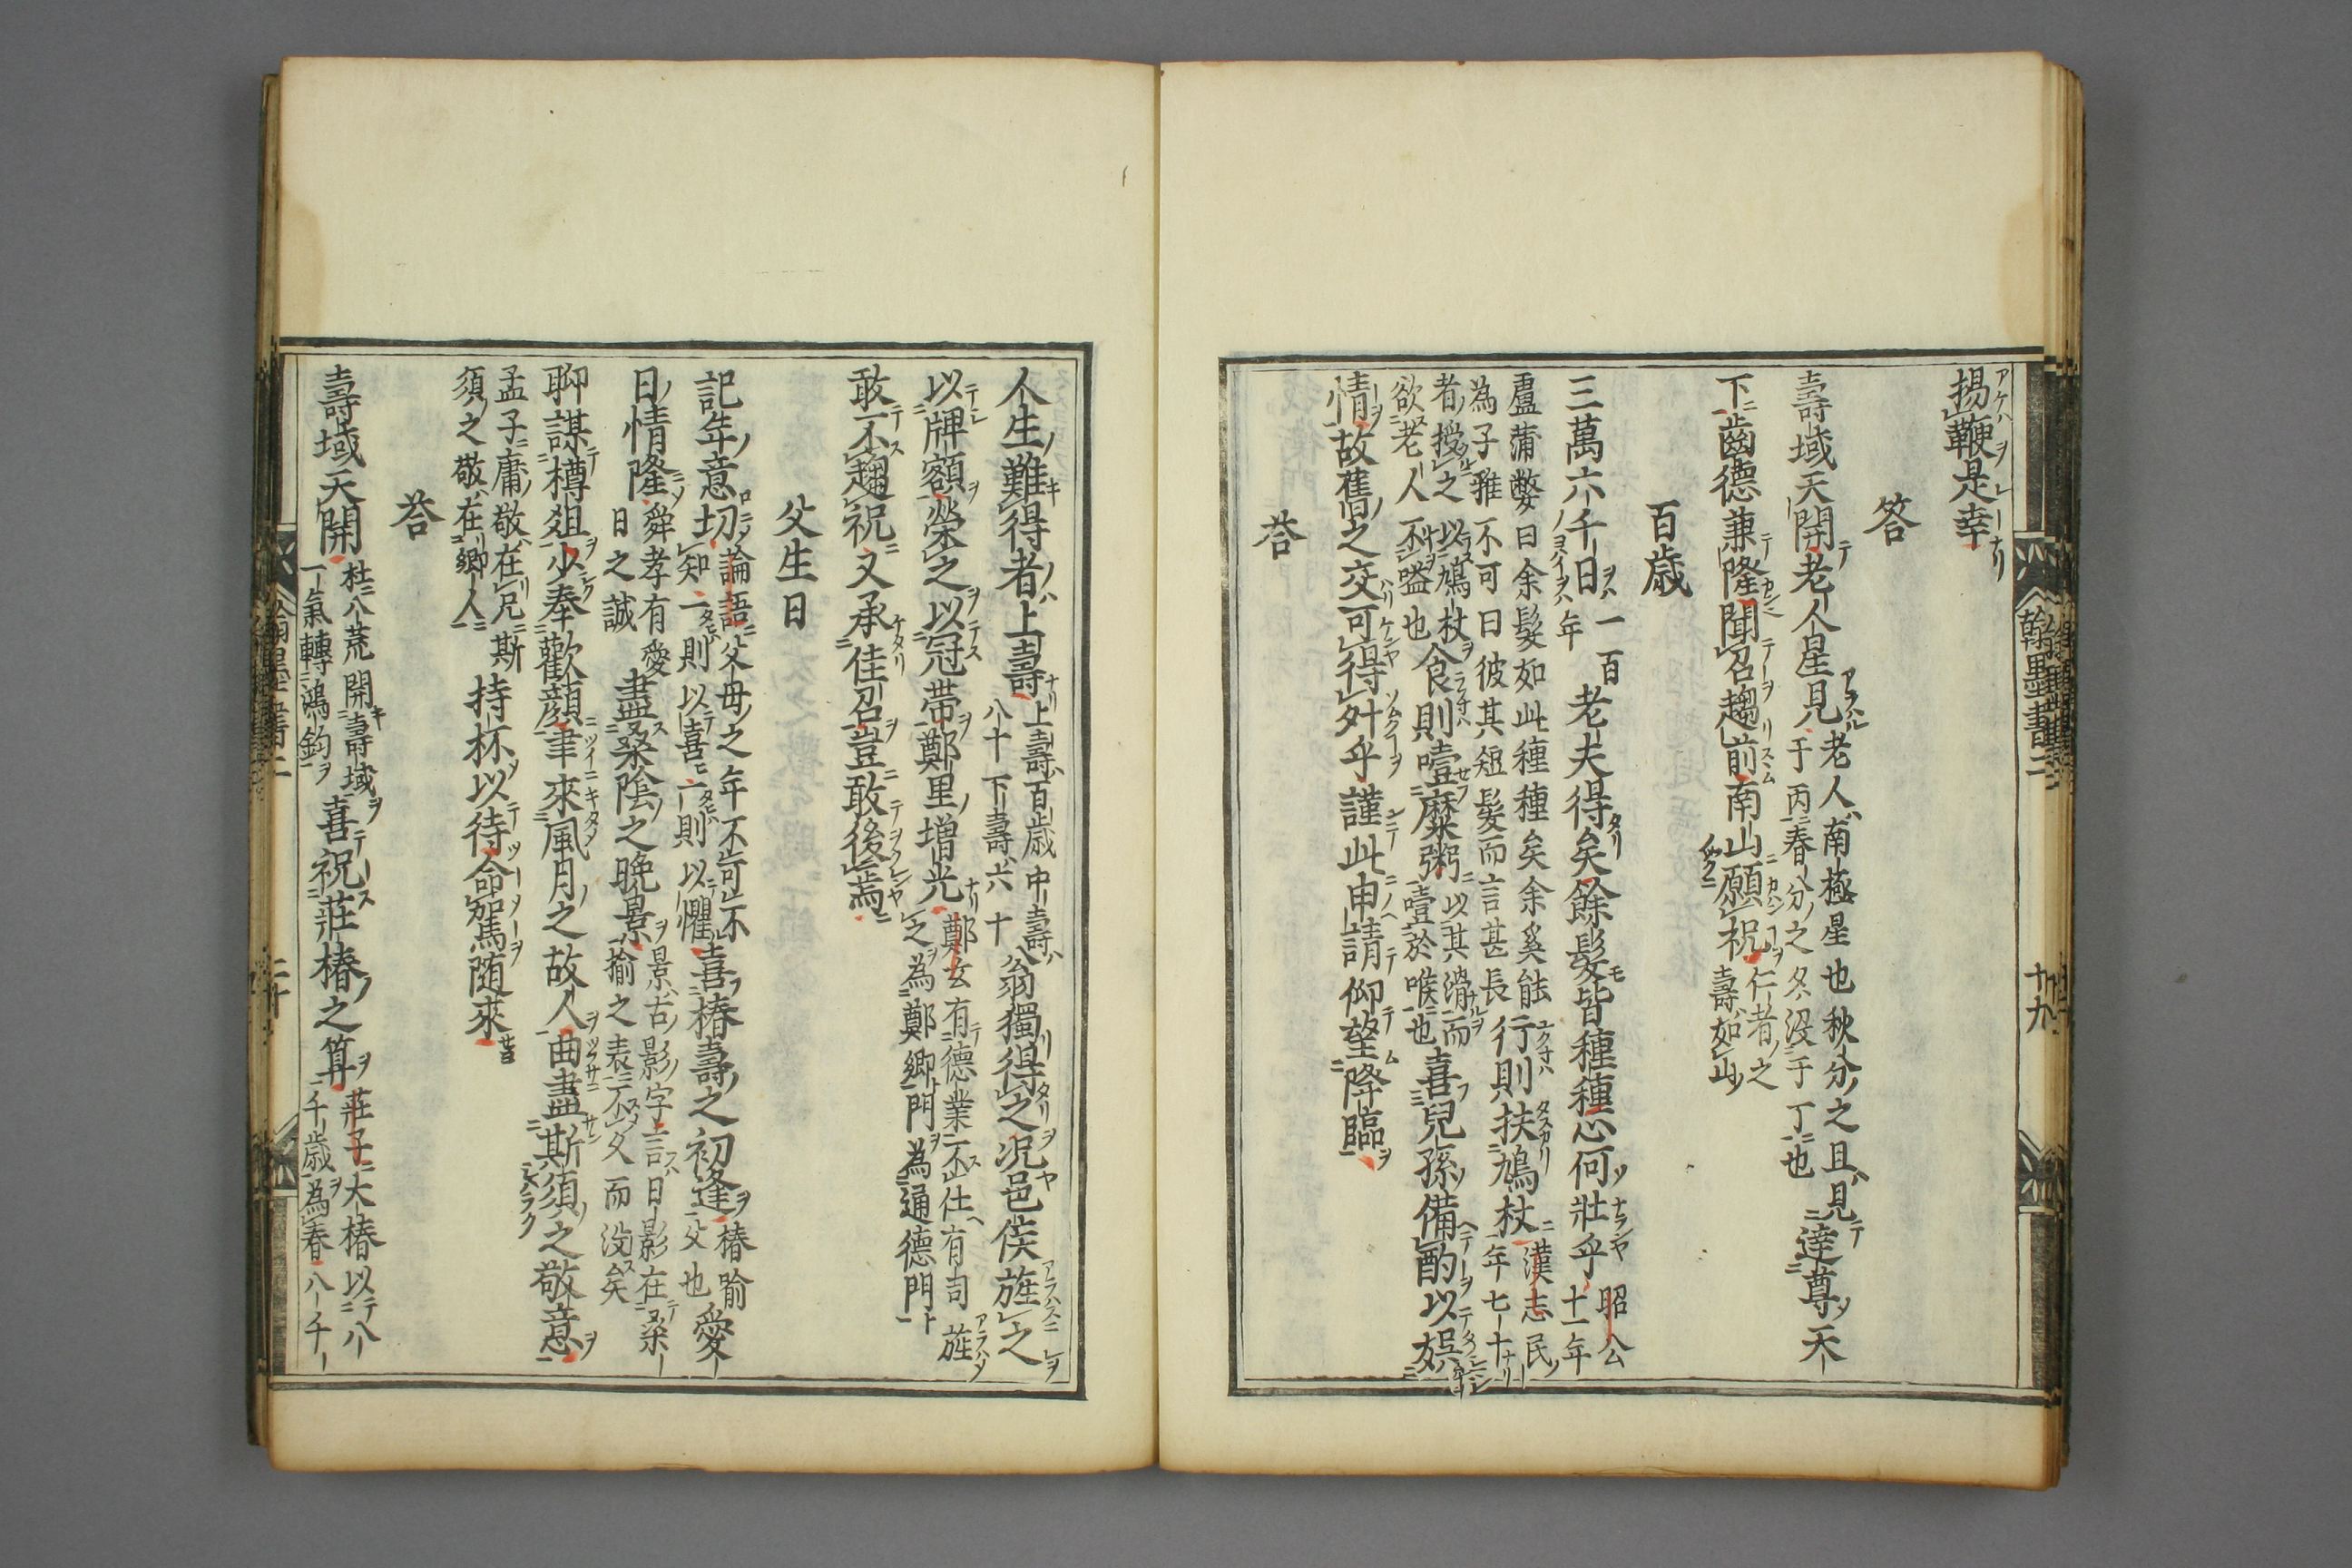 揚鞭是幸
答
壽域天開老人星見老人南極星也秋分之旦見于丙春分之夕沒于丁也達尊天
下齒德兼隆聞召趨前南山願祝仁者之壽如山
百歳
三萬六千日一百年老夫得矣餘髮皆種種心何壯乎昭公十一年
盧蒲嫳曰余髮如此種種矣余奚能為子雅不可曰彼其短髮而言甚長行則扶鳩杖漢志民年七十
者授之以鳩杖欲老人不噎也食則噎糜粥以其滑而噎於喉也喜兒孫備酌以娯
情故舊之交可得外乎謹此申請仰望降臨
荅
翰墨書二
十九
人生難得者上壽上壽百歳中壽八十下壽六十翁獨得之况邑侯旌之
以牌額榮之以冠帶鄭里增光鄭玄有德業不仕有司旌之為鄭鄉門為通德門
敢不趨祝又承佳召豈敢後焉
父生日
記年意切論語父母之年不可不知一則以喜一則以懼喜椿壽之初逢椿喻父也愛
日情隆舜孝有愛日之誠盡桑陰之晩景景古影字言日影在桑揄之表不久而沒矣
聊謀樽俎少奉歡顔聿來風月之故人曲盡斯須之敬意
孟子庸敬在兄斯須之敬在鄉人持杯以待命駕随來
荅
壽域天開杜八荒開壽域一氣轉鴻鈞喜祝莊椿之算莊子大椿以八千歳為春八千
二十